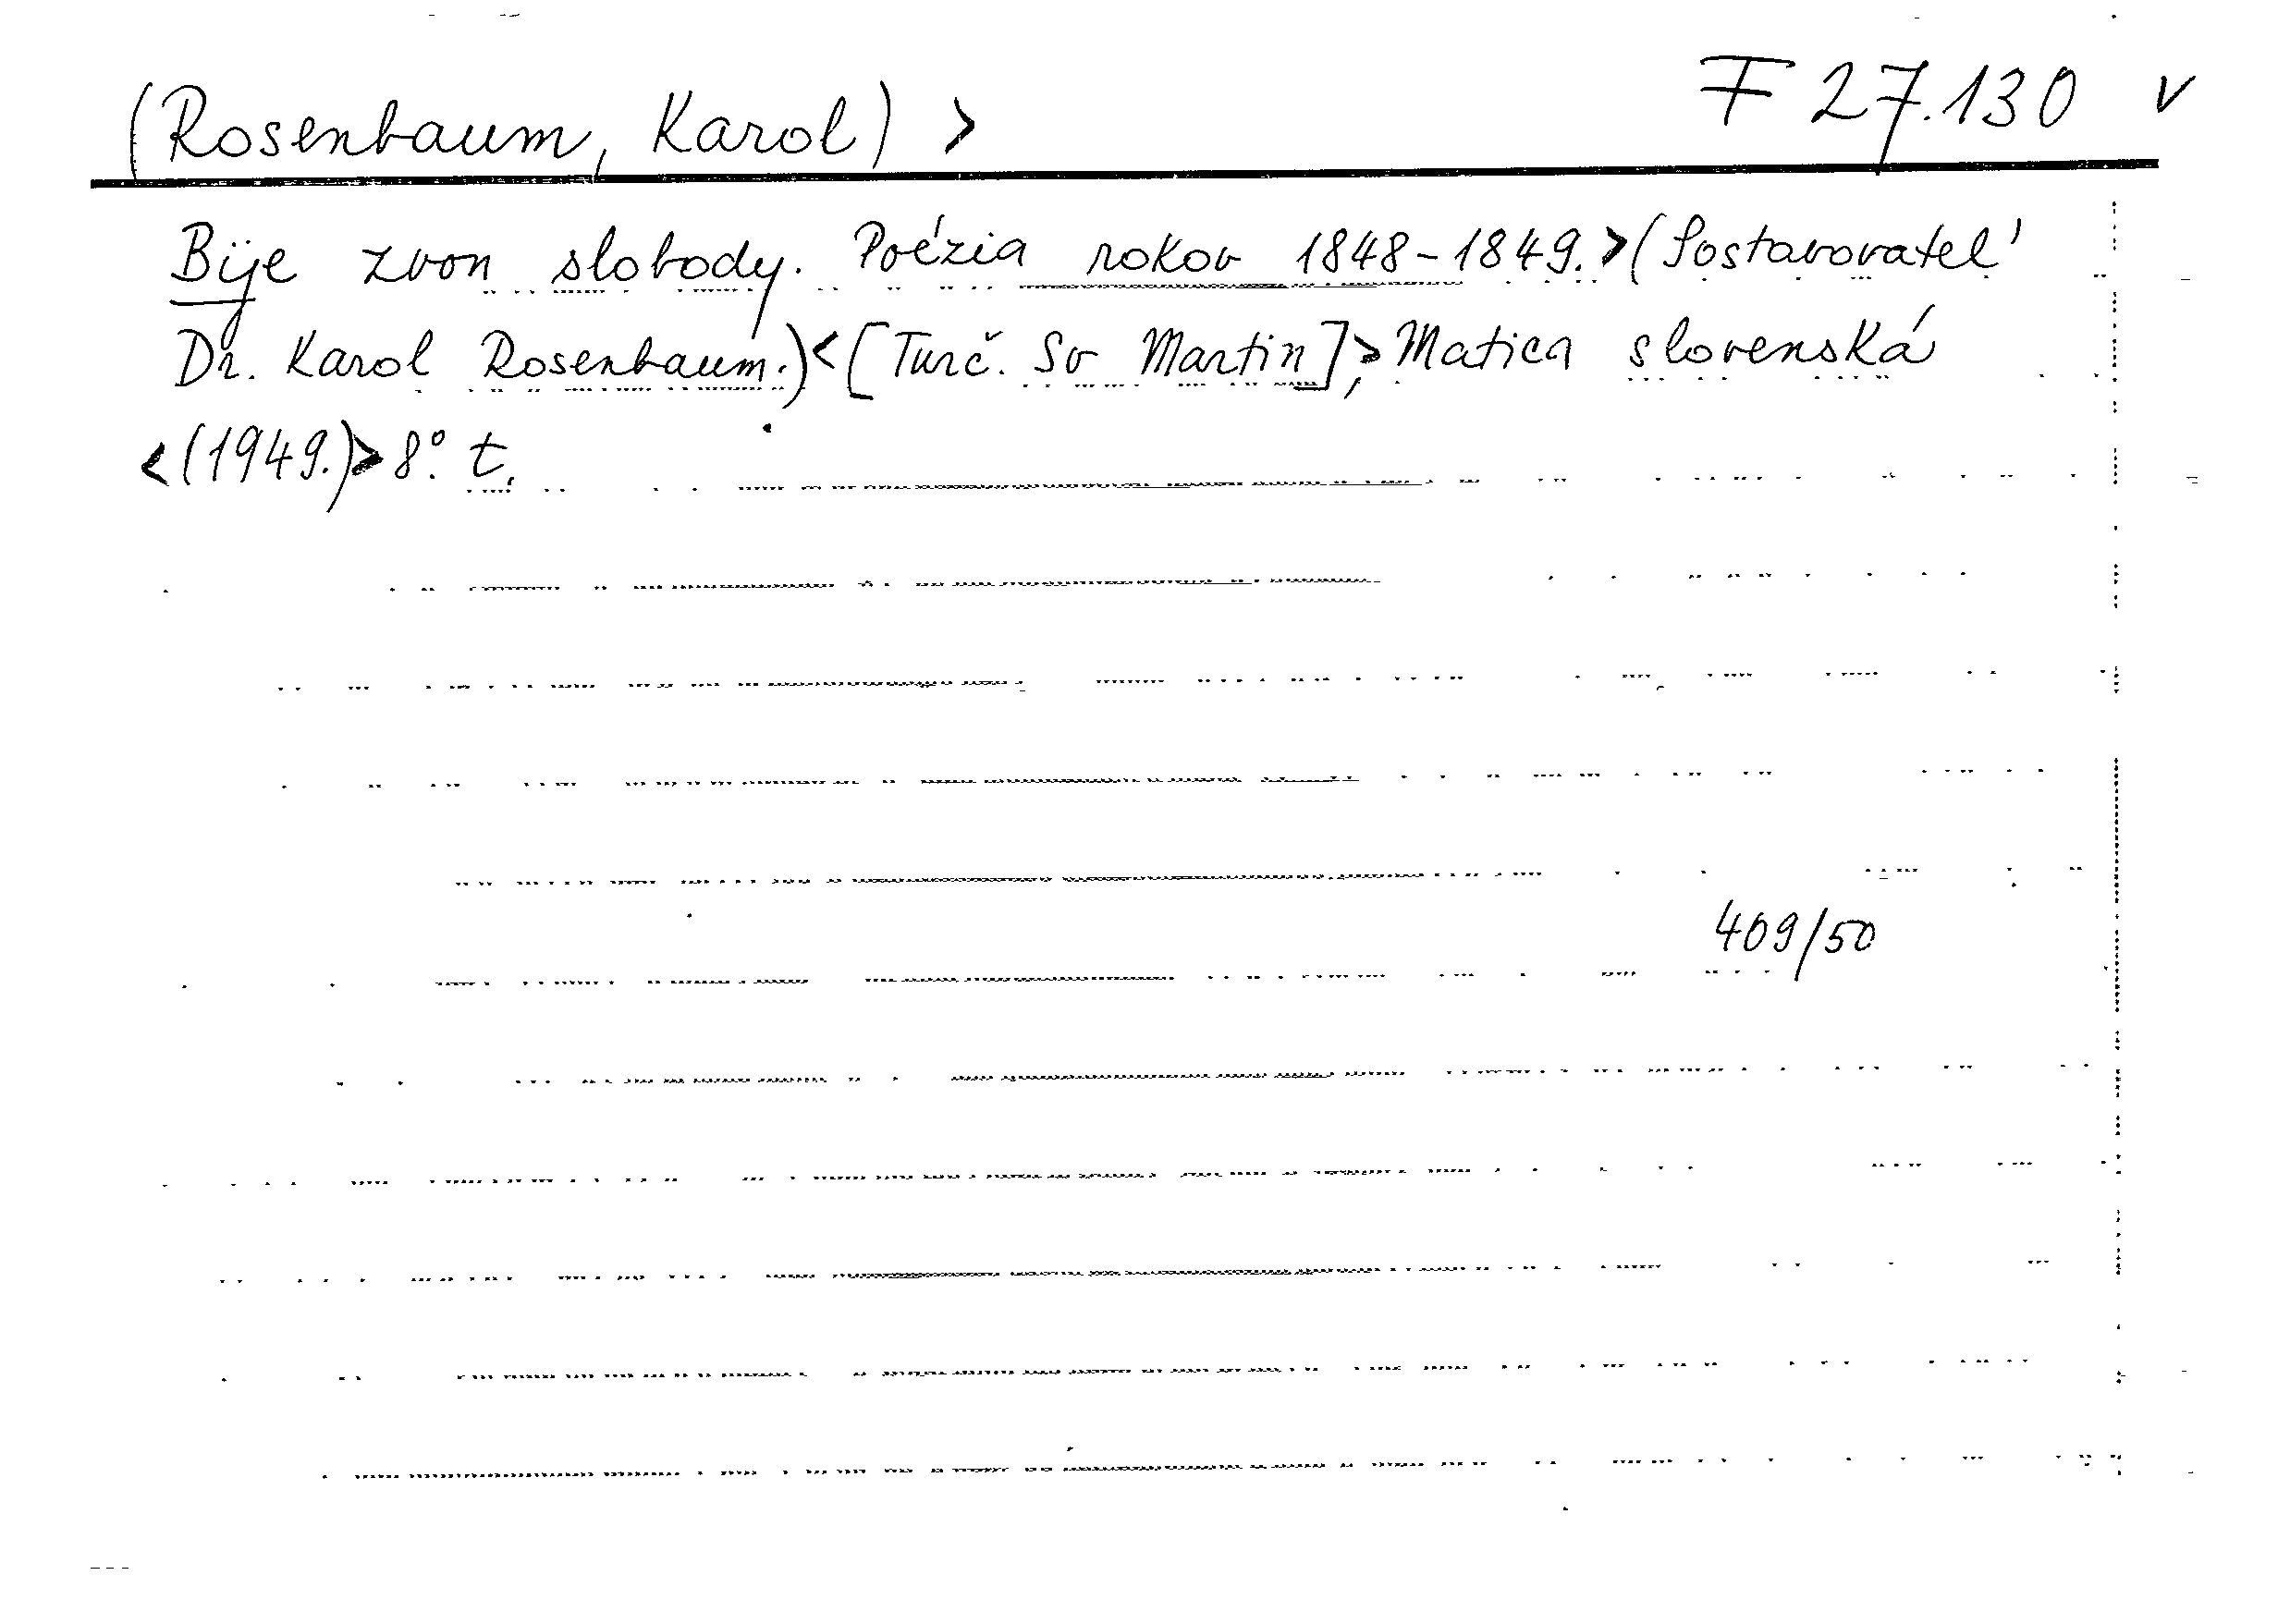 (Rosenbaum, Karol) > F 27.130 v
Bije zvon slobody. Poézia rokov 1848-1849.>(Sostavovateľ
Dr. Karol Rosenbaum.)<[Turč. Sv Martin],> Matica slovenská
<(1949.)> 8°. t.
409/50